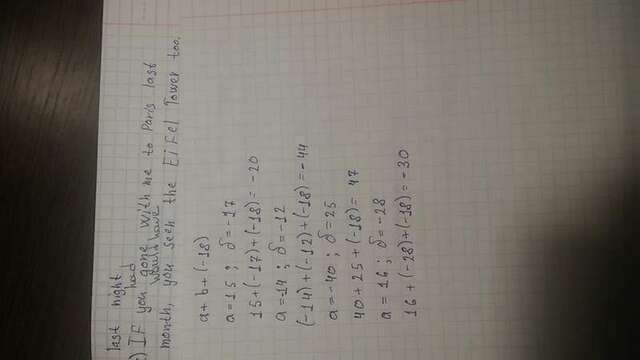 last night
had
) If you gone with me to Paris last
would have
month, you seen the Eifel Tower too.
a + b + (-18)
a = 15 ; б = -17
15 + (-17) + (-18) = -20
a = -14 ; б = -12
(-14) + (-12) + (-18) = -44
a = -40 ; б = 25
40 + 25 + (-18) = 47
a = 16 ; б = -28
16 + (-28) + (-18) = -30